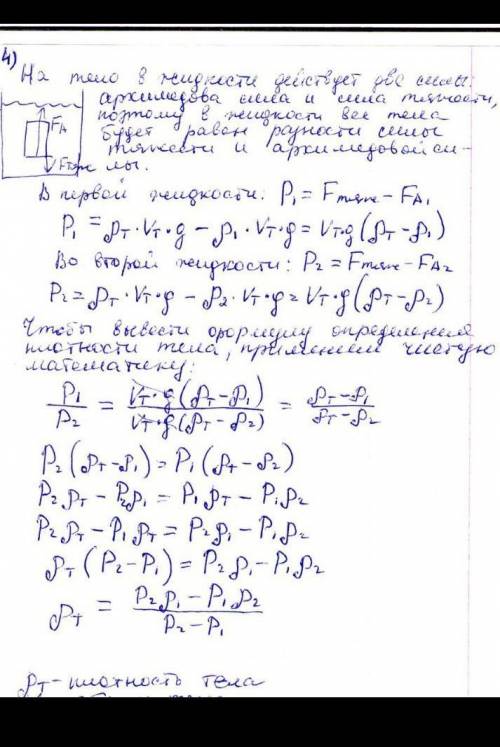 4)
На тело в жидкости действует два силы:
архимедова сила и сила тяжести,
поэтому в жидкости вес тела
будет равен разности силы
тяжести и архимедовой си-
лы.
F_A
Fтяж
В первой жидкости: P₁ = Fтяж – F_A₁
P₁ = ρ_T · V_T · g – ρ₁ · V_T · g = V_T g (ρ_T – ρ₁)
Во второй жидкости: P₂ = Fтяж – F_A₂
P₂ = ρ_T · V_T · g – ρ₂ · V_T · g = V_T · g (ρ_T – ρ₂)
Чтобы вывести формулу определения
плотности тела, применяем чистую
математику:
P₁/P₂ = V_T · g (ρ_T – ρ₁)/V_T · g (ρ_T – ρ₂) = ρ_T – ρ₁/ρ_T – ρ₂
P₂ (ρ_T – ρ₁) = P₁ (ρ_T – ρ₂)
P₂ρ_T – P₂ρ₁ = P₁ρ_T – P₁ρ₂
P₂ρ_T – P₁ρ_T = P₂ρ₁ – P₁ρ₂
ρ_T (P₂ – P₁) = P₂ρ₁ – P₁ρ₂
ρ_T = P₂ρ₁ – P₁ρ₂/P₂ – P₁
ρ_T – плотность тела